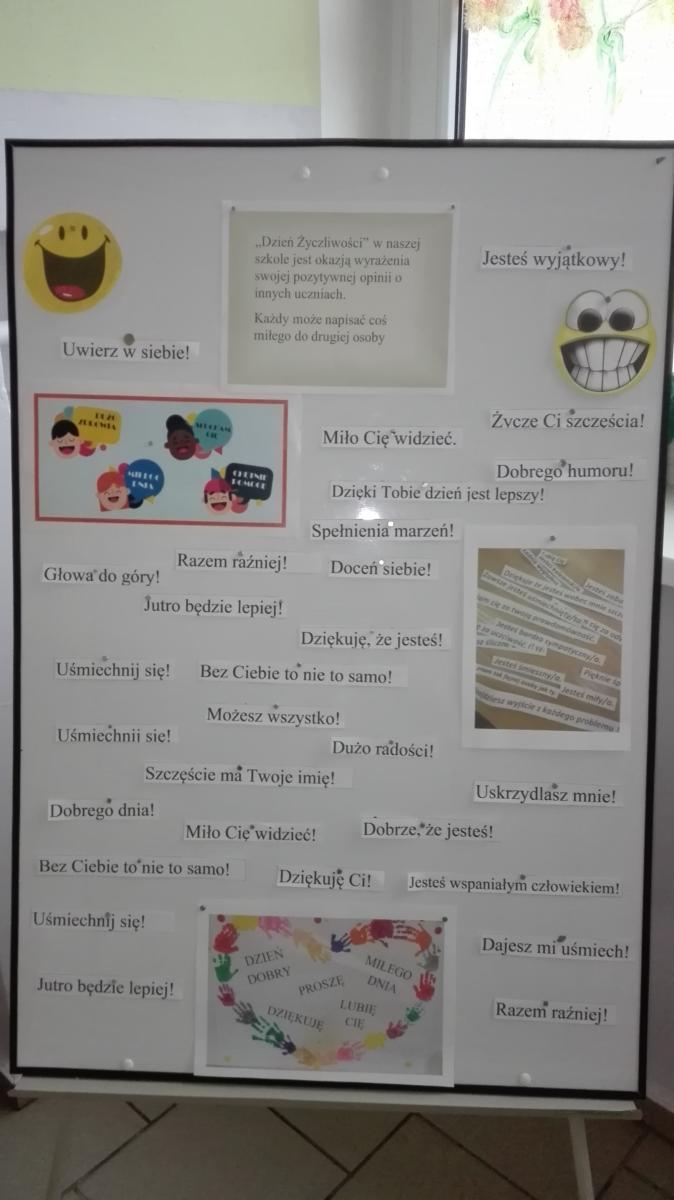 „Dzień Życzliwości” w naszej
szkole jest okazją wyrażenia
swojej pozytywnej opinii o
innych uczniach.
Każdy może napisać coś
miłego do drugiej osoby
Jesteś wyjątkowy!
Uwierz w siebie!
DUŻO
ZDROWIA
SŁUCHAM
CIĘ
MIŁEGO
DNIA
CHĘTNIE
POMOGĘ
Życzę Ci szczęścia!
Miło Cię widzieć.
Dobrego humoru!
Dzięki Tobie dzień jest lepszy!
Spełnienia marzeń!
Razem raźniej!
Doceń siebie!
Głowa do góry!
Jutro będzie lepiej!
Dziękuję, że jesteś!
Dziękuję że jesteś wobec mnie
Zawsze jesteś uśmiechnięty/a!!!
się za twoją prawdomówność.
Jesteś bardzo sympatyczny/a.
za uczciwość.
Jesteś śmieszny/a.
Pięknie
Jesteś miły/a.
wyjście z każdego problemu
Uśmiechnij się!
Bez Ciebie to nie to samo!
Możesz wszystko!
Uśmiechnij się!
Dużo radości!
Szczęście ma Twoje imię!
Uskrzydlasz mnie!
Dobrego dnia!
Miło Cię widzieć!
Dobrze, że jesteś!
Bez Ciebie to nie to samo!
Dziękuję Ci!
Jesteś wspaniałym człowiekiem!
Uśmiechnij się!
Dajesz mi uśmiech!
DZIEŃ
DOBRY
PROSZĘ
MIŁEGO
DNIA
DZIĘKUJĘ
LUBIĘ
CIĘ
Jutro będzie lepiej!
Razem raźniej!